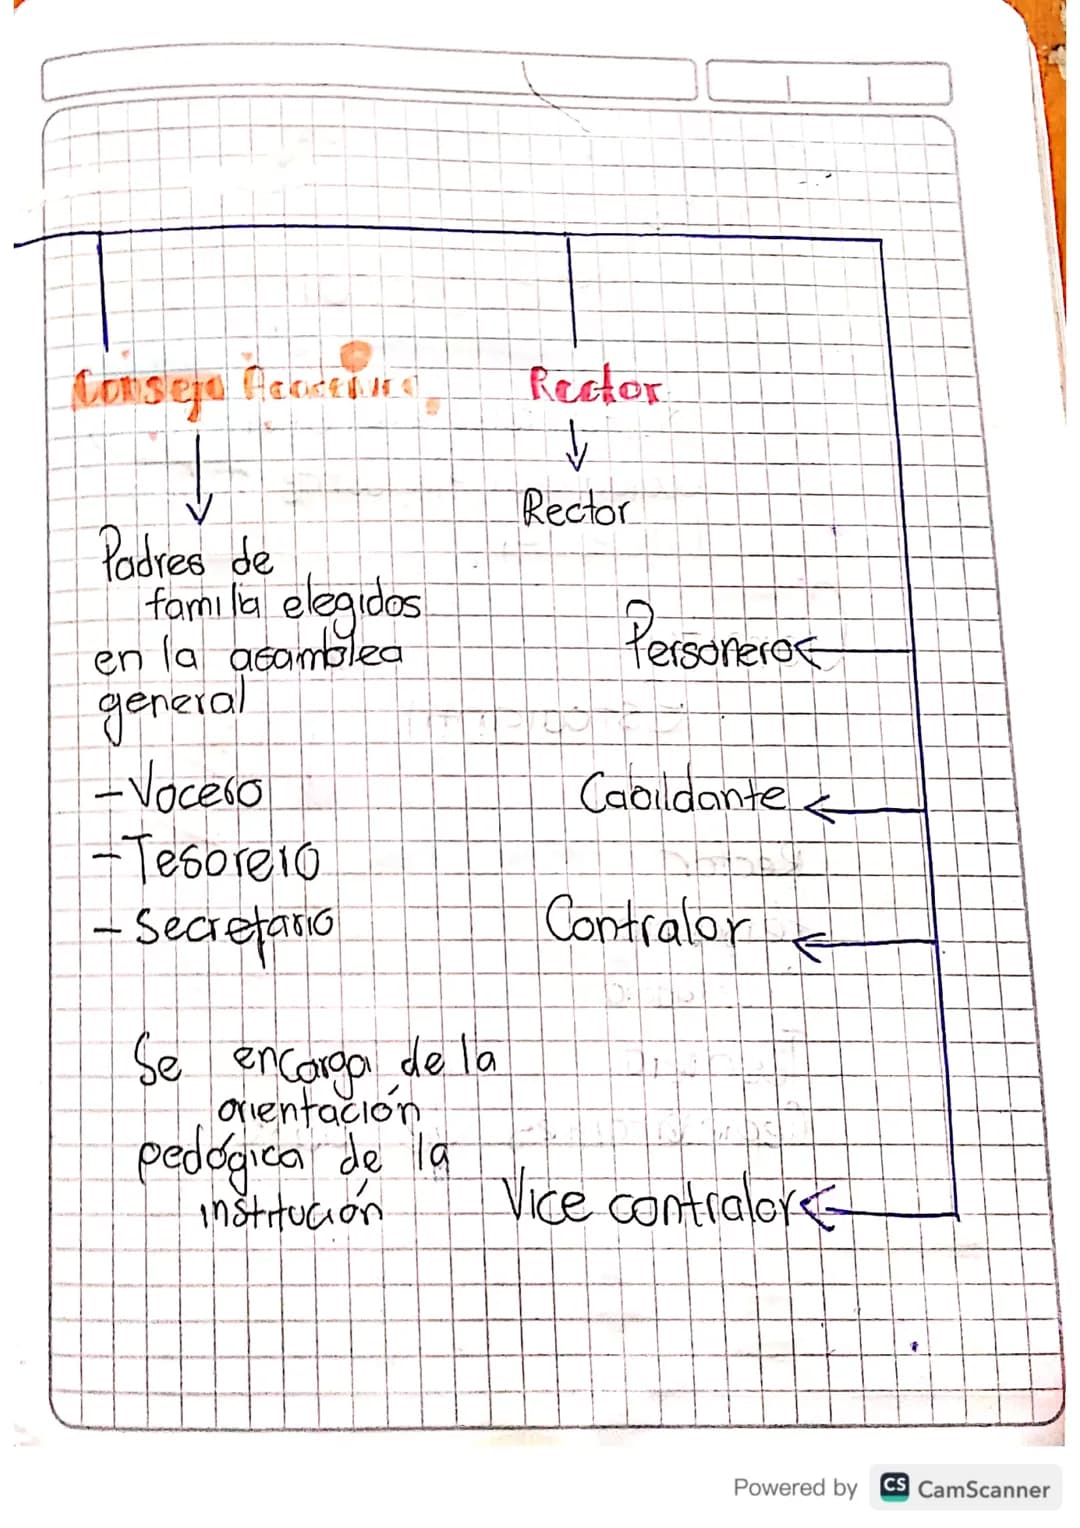 Consejo Academico
Rector
Rector
Padres de
familia elegidos
en la asamblea
general
Personero
- Vocero
Cabildante
- Tesorero
- Secretario
Contralor
Se encarga de la
orientación
pedógica de la
institución
Vice contralor
Powered by CS CamScanner